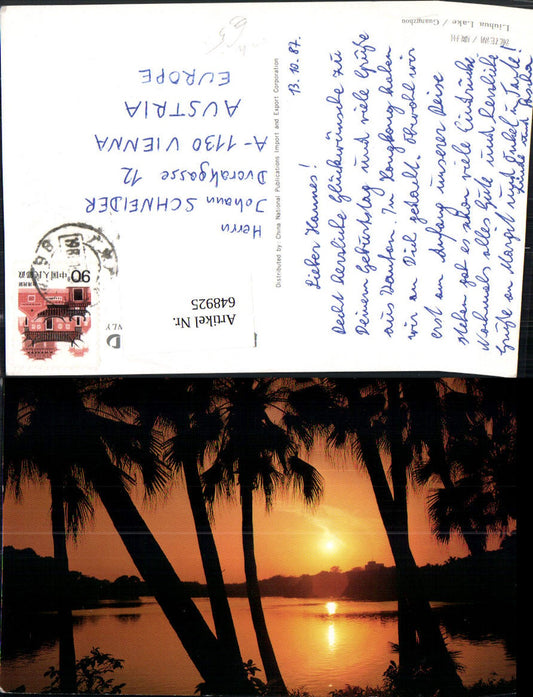 流花湖 / 广州
Liuhua Lake / Guangzhou
13.10.87.
Lieber Hannes!
Recht herzliche Glückwünsche zu
Deinem Geburtstag und viele Grüße
aus Kanton. In Hongkong haben
wir an Dich gedacht. Obwohl wir
erst am Anfang unserer Reise
stehen gab es schon viele Eindrücke
Nochmals alles Gute und herzliche
Grüße an Margit und Onkel u Tante!
Linde und
Distributed by China National Publications Import and Export Corporation
Herrn
Johann SCHNEIDER
Dvorakgasse 12
A-1130 VIENNA
AUSTRIA
EUROPE
90
中国人民邮政
Artikel Nr.
648925
VLY
D